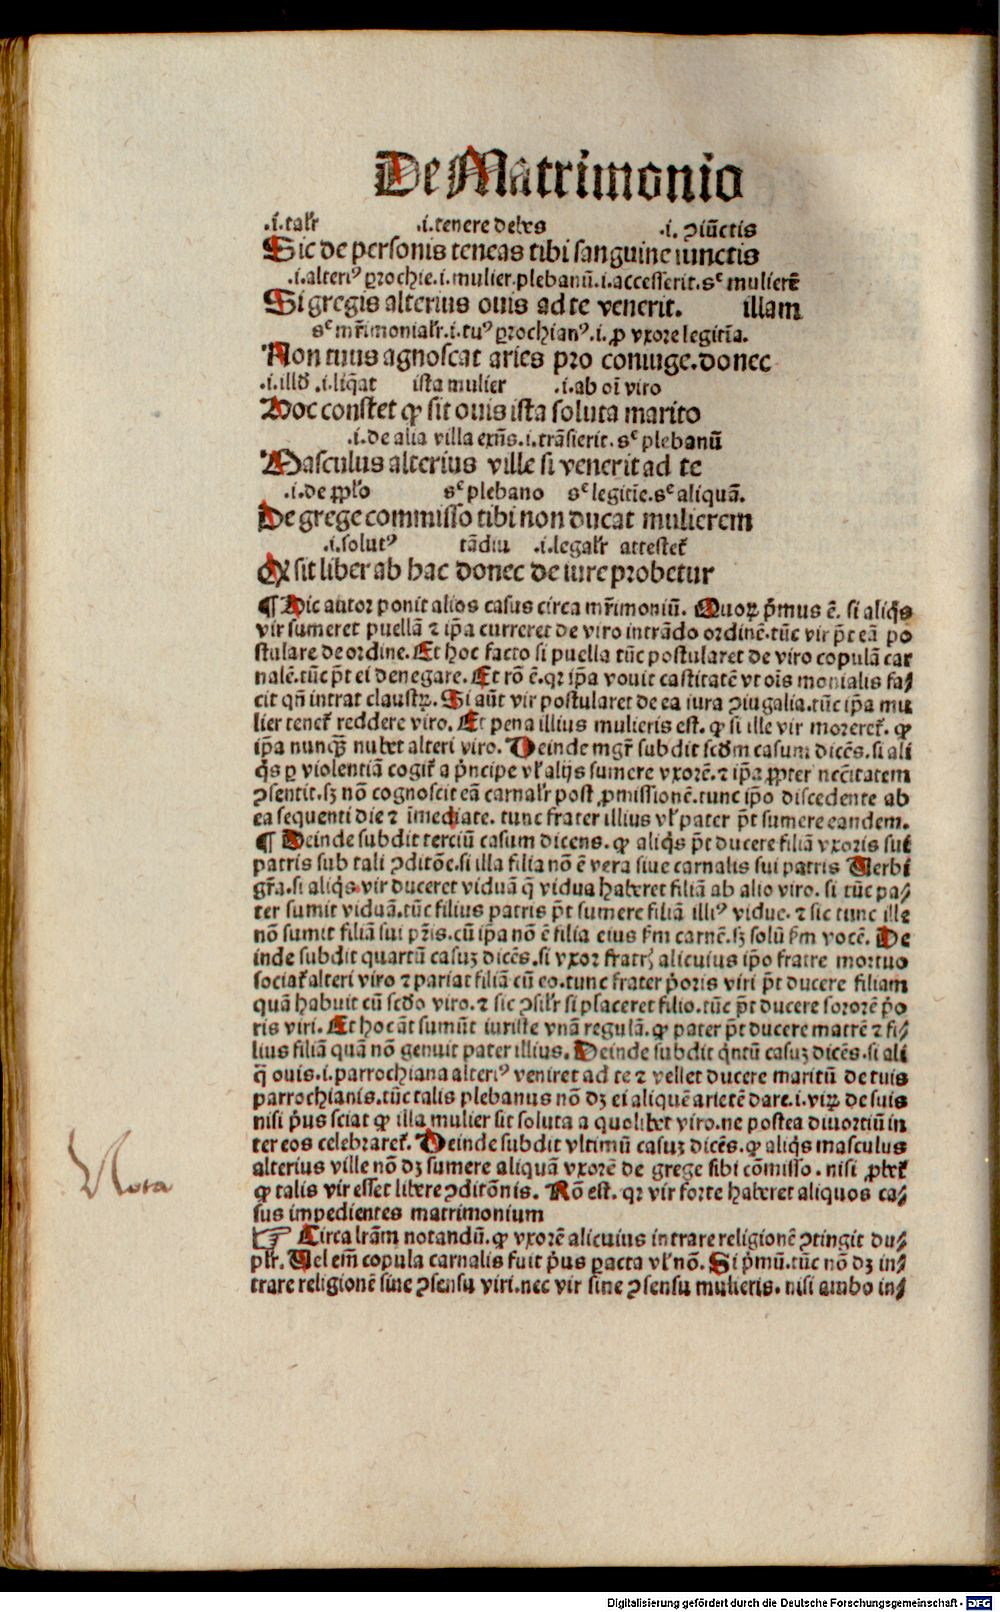 De Matrimonio
.i. talr̃ .i. tenere debes .i. ꝯiũctis
Sic de personis teneas tibi sanguine iunctis
.i. alteriꝰ ꝑrochie .i. mulier. plebanũ .i. accesserit. sᶜ mulierẽ
Si gregis alterius ouis ad te venerit. illam
sᶜ mr̃imonialr̃ .i. tuꝰ ꝑrochianꝰ .i. ꝓ vxore legitĩa.
Non tuus agnoscat aries pro coniuge. donec
.i. illd̃ .i. liq̃at ista mulier .i. ab oĩ viro
Hoc constet ꝙ sit ouis ista soluta marito
.i. de alia villa exñs .i. trãsierit. sᶜ plebanũ
Masculus alterius ville si venerit ad te
.i. de ppl̃o sᶜ plebano sᶜ legitĩe. sᶜ aliquã.
De grege commisso tibi non ducat mulierem
.i. solutꝰ tãdiu .i. legalr̃ attestet᷑
Qꝫ sit liber ab hac donec de iure probetur
¶ Hic autor ponit alios casus circa mr̃imoniũ. Quoꝝ p̃mus ẽ. si aliq̃s
vir sumeret puellã ⁊ ip̃a curreret de viro intrãdo ordinẽ. tũc vir p̃t eã po
stulare de ordine. Et hoc facto si puella tũc postularet de viro copulã car
nalẽ. tũc p̃t ei denegare. Et rõ ẽ. qꝛ ip̃a vouit castitatẽ vt oĩs monialis fa⸗
cit qñ intrat claustꝝ. Si aũt vir postularet de ea iura ꝯiugalia. tũc ip̃a mu
lier tenet᷑ reddere viro. Et pena illius mulieris est. ꝙ si ille vir moreret᷑. ꝙ
ip̃a nunq̃ꝫ nubet alteri viro. Deinde mgr̃ subdit scd̃m casum dicẽs. si ali
q̃s ꝑ violentiã cogit᷑ a p̃ncipe vl̃ alijs sumere vxorẽ. ⁊ ip̃a ꝓpter necĩtatem
ꝯsentit. sꝫ nõ cognoscit eã carnalr̃ post ꝓmissionẽ. tunc ip̃o discedente ab
ea sequenti die ⁊ ĩmediate. tunc frater illius vl̃ pater p̃t sumere eandem.
¶ Deinde subdit terciũ casum dicens. ꝙ aliq̃s p̃t ducere filiã vxoris sui
patris sub tali ꝯditõe. si illa filia nõ ẽ vera siue carnalis sui patris Verbi
gr̃a. si aliq̃s vir duceret viduã q̃ vidua haberet filiã ab alio viro. si tũc pa⸗
ter sumit viduã. tũc filius patris p̃t sumere filiã illiꝰ vidue. ⁊ sic tunc ille
nõ sumit filiã sui pr̃is. cũ ip̃a nõ ẽ filia eius ẜm carnẽ. sꝫ solũ ẜm vocẽ. De
inde subdit quartũ casuꝫ dicẽs. si vxor fratrꝭ alicuius ip̃o fratre mortuo
sociat᷑ alteri viro ⁊ pariat filiã cũ eo. tunc frater p̃oris viri p̃t ducere filiam
quã habuit cũ scd̃o viro. ⁊ sic ꝯsilr̃ si placeret filio. tũc p̃t ducere sororẽ p̃o
ris viri. Et hoc ãt sumũt iuriste vnã regulã. ꝙ pater p̃t ducere matrẽ ⁊ fi⸗
lius filiã quã nõ genuit pater illius. Deinde subdit q̃ntũ casuꝫ dicẽs. si ali
q̃ ouis .i. parrochiana alteriꝰ veniret ad te ⁊ vellet ducere maritũ de tuis
parrochianis. tũc talis plebanus nõ dꝫ ei aliquẽ arietẽ dare .i. viꝝ de suis
nisi p̃us sciat ꝙ illa mulier sit soluta a quolibet viro. ne postea diuortiũ in
ter eos celebraret᷑. Deinde subdit vltimũ casuꝫ dicẽs. ꝙ aliq̃s masculus
alterius ville nõ dꝫ sumere aliquã vxorẽ de grege sibi cõmisso. nisi ꝓbet᷑
ꝙ talis vir esset libere ꝯditõnis. Rõ est. qꝛ vir forte haberet aliquos ca⸗
sus impedientes matrimonium
Nota
☞ Circa lr̃am notandũ. ꝙ vxorẽ alicuius intrare religionẽ ꝯtingit du⸗
plr̃. Vel em̃ copula carnalis fuit p̃us ꝑacta vl̃ nõ. Si p̃mũ. tũc nõ dꝫ in⸗
trare religionẽ sine ꝯsensu viri. nec vir sine ꝯsensu mulieris. nisi ambo in⸗
Digitalisierung gefördert durch die Deutsche Forschungsgemeinschaft - DFG